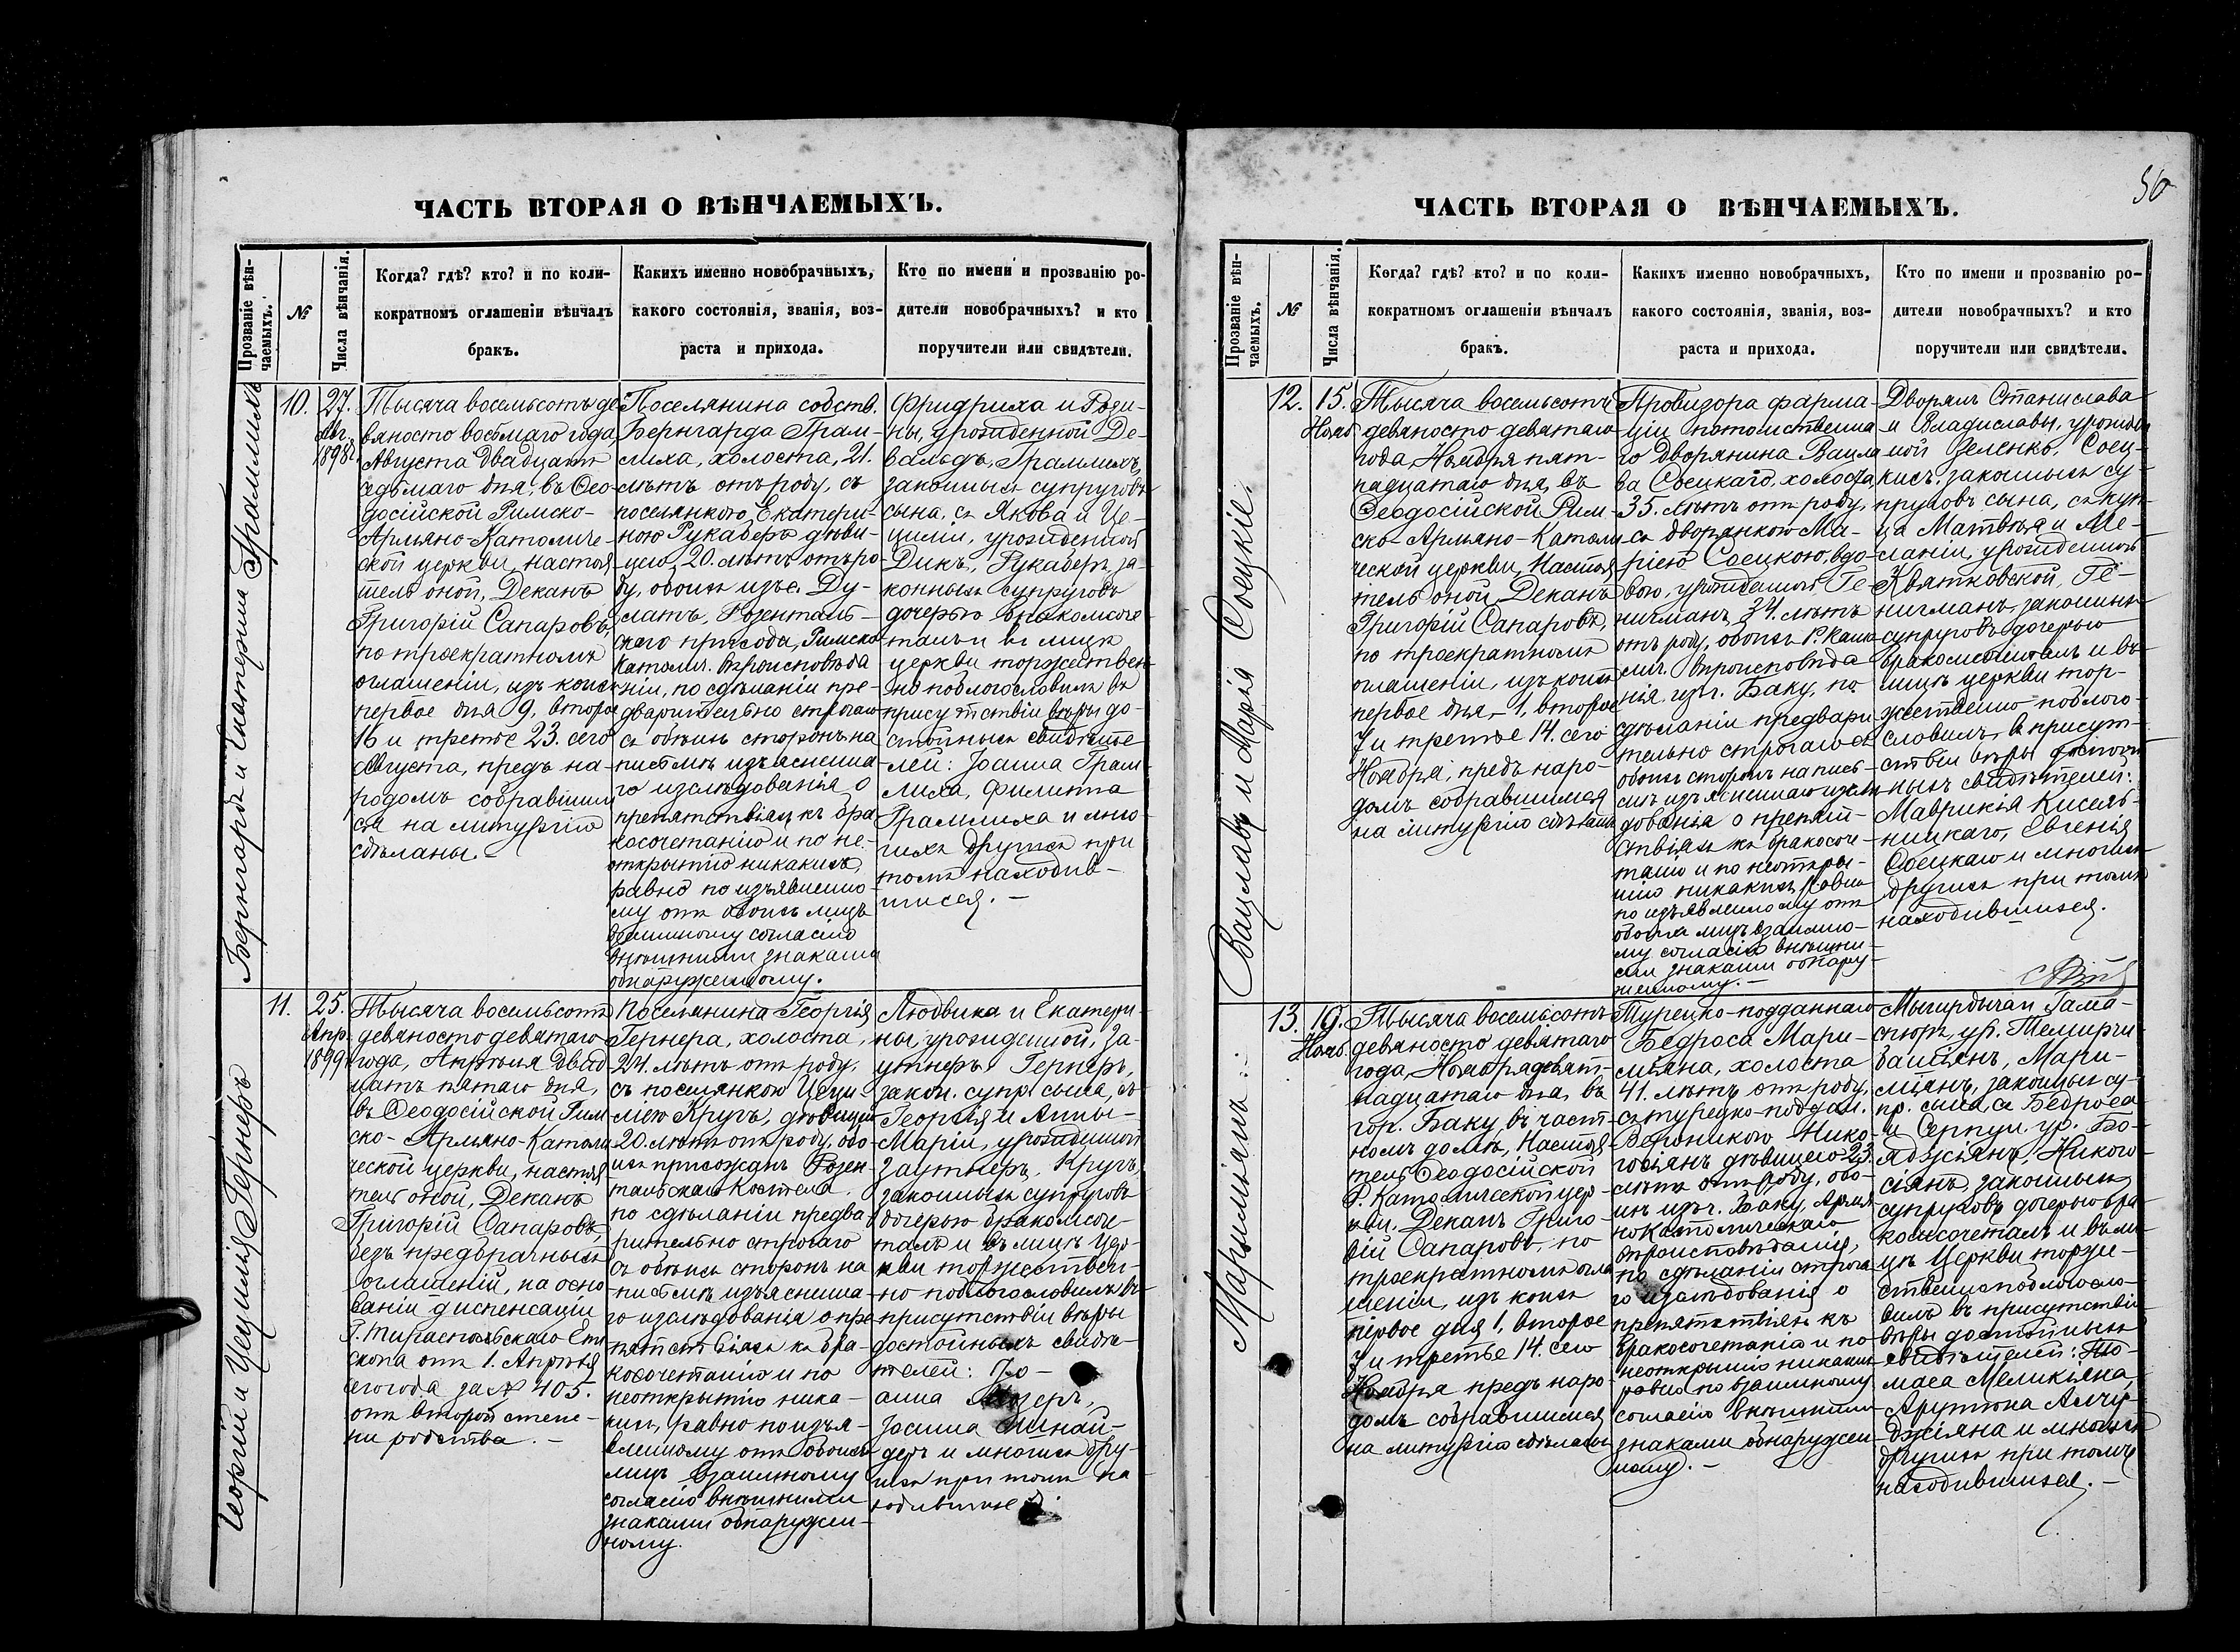 ЧАСТЬ ВТОРАЯ О ВѢНЧАЕМЫХЪ.
Прозваніе вѣнчаемыхъ.
№
Числа вѣнчанія.
Когда? гдѣ? кто? и по коли-
кократномъ оглашеніи вѣнчалъ
бракъ.
Какихъ именно новобрачныхъ,
какого состоянія, званія, воз-
раста и прихода.
Кто по имени и прозванію ро-
дители новобрачныхъ? и кто
поручители или свидѣтели.
Бернгардъ и Екатерина Грамлихъ
10.
27.
Авг.
1898г.
Тысяча восемьсотъ де-
вяносто восьмаго года,
Августа двадцать
седьмаго дня, въ Ѳео-
досійской Римско-
Армяно-Католиче-
ской церкви, настоя
тель оной, Деканъ
Григорій Сапаровъ,
по троекратномъ
оглашеніи, изъ коихъ
первое дня 9, второе
16 и третье 23. сего
Августа, предъ на-
родомъ собравшим
ся на литургію
сдѣланы.-
Поселянина собств.
Бернгарда Грам-
лиха, холоста, 21.
лѣтъ отъ роду, съ
поселянкою Екатери-
ною Рукаберъ дѣви-
цею, 20. лѣтъ отъ ро
ду, обоихъ изъ с. Ду-
латъ, Розенталь-
скаго прихода, Римско
Католич. вѣроисповѣда
нія, по сдѣланіи пре-
дварительно строгаго
съ обѣихъ сторонъ на
письмѣ изъясненна-
го изслѣдованія о
препятствіяхъ къ бра
косочетанію и по не-
открытію никакихъ,
равно по изъявленно-
му отъ обоихъ лицъ
взаимному согласію
внѣшними знаками
обнаруженному.
Фридриха и Рози-
ны, урожденной Де-
вальдъ, Грамлихъ,
законныхъ супруговъ
сына, съ Якова и Це-
циліи, урожденной
Дикъ, Рукаберъ, за-
конныхъ супруговъ
дочерью бракосоче-
талъ и въ лицѣ
церкви торжествен-
но поблагословилъ въ
присутствіи вѣры до-
стойныхъ свидѣте-
лей: Іоанна Грам-
лиха, Филиппа
Грамлиха и мно-
гихъ другихъ при
томъ находив-
шихся.-
Георгій и Цецилія Гернеръ
11.
25.
Апр.
1899
Тысяча восемьсотъ
девяносто девятаго
года, Апрѣля двад
цать пятаго дня,
въ Ѳеодосійской Рим
ско-Армяно-Католи
ческой церкви, настоя
тель оной, Деканъ
Григорій Сапаровъ,
безъ предбрачныхъ
оглашеній, на осно
ваніи диспенсаціи
Г. Тираспольскаго Епи
скопа отъ 1. Апрѣля
сего года за № 405.
отъ второй степе-
ни родства.-
Поселянина Георгія
Гернера, холоста,
24. лѣтъ отъ роду,
съ поселянкою Цеци
ліею Кругъ, дѣвицею
20. лѣтъ отъ роду, обо
ихъ прихожанъ Розен-
тальскаго Костела.
по сдѣланіи предва-
рительно строгаго
съ обѣихъ сторонъ на
письмѣ изъяснена-
го изслѣдованія о пре
пятствіяхъ къ бра-
косочетанію и по
неоткрытію ника-
кихъ, равно по изъя-
вленному отъ обоихъ
лицъ взаимному
согласію внѣшними
знаками обнаружен-
ному.
Людвика и Екатери-
ны, урожденной, За-
утнеръ Гернеръ,
закон. супр. сына, съ
Георгія и Анны-
Маріи, урожденной
Заутнеръ, Кругъ,
законныхъ супруговъ
дочерью бракосоче-
талъ и въ лицѣ цер-
кви торжествен-
но поблагословилъ въ
присутствіи вѣры
достойныхъ свидѣ-
телей: Іо-
анна
Іоанна Шнай-
деръ и многихъ дру-
гихъ при томъ на-
ходившихся.
50
ЧАСТЬ ВТОРАЯ О ВѢНЧАЕМЫХЪ.
Прозваніе вѣнчаемыхъ.
№
Числа вѣнчанія.
Когда? гдѣ? кто? и по коли-
кократномъ оглашеніи вѣнчалъ
бракъ.
Какихъ именно новобрачныхъ,
какого состоянія, званія, воз-
раста и прихода.
Кто по имени и прозванію ро-
дители новобрачныхъ? и кто
поручители или свидѣтели.
Вацлавъ и Марія Соецкіе.
12.
15.
Нояб
Тысяча восемьсотъ
девяносто девятаго
года, Ноября пят-
надцатаго дня, въ
Ѳеодосійской Рим-
ско-Армяно-Католи
ческой церкви, Настоя
тель оной, Деканъ
Григорій Сапаровъ,
по троекратномъ
оглашеніи, изъ коихъ
первое дня-1, второе
7 и третье 14. сего
Ноября, предъ наро-
домъ собравшимся
на литургію сдѣланы
Провизора фарма-
ціи потомственна
го дворянина Вацла
ва Соецкаго, холоста,
35. лѣтъ отъ роду,
съ дворянкою Ма-
ріею Соецкою, вдо-
вою, урожденною Ге
нигманъ, 34. лѣтъ
отъ роду, обоихъ Р. Като
лич. вѣроисповѣда
нія, изъ г. Баку, по
сдѣланіи предвари
тельно строгаго съ
обоихъ сторонъ на пись-
мѣ изъясненнаго изслѣ
дованія о препят-
ствіяхъ къ бракосоче-
танію и по неоткры-
тію никакихъ, равно
по изъявленному отъ
обоихъ лицъ взаимно-
му согласію внѣшни-
ми знаками обнару-
женному.-
Дворянъ Станислава
и Владиславы, урожден
ной Зеленко, Соец-
кихъ, законныхъ су-
пруговъ сына, съ куп-
ца Матвѣя и Ме-
ланіи, урожденной
Квятковской, Ге-
нигманъ, законныхъ
супруговъ дочерью
бракосочеталъ и въ
лицѣ церкви тор-
жественно поблаго-
словилъ, въ присут-
ствіи вѣры достой-
ныхъ свидѣтелей:
Маврикія Кисель-
ницкаго, Евгенія
Соецкаго и многихъ
другихъ при томъ
находившихся.
Маримьянъ
13.
19.
Нояб.
Тысяча восемьсотъ
девяносто девятаго
года, Ноября девят-
надцатаго дня, въ
гор. Баку, въ част-
номъ домѣ, Настоя-
тель Ѳеодосійской
Р. Католической цер-
кви. Деканъ Григо-
рій Сапаровъ, по
троекратномъ огла
шеніи, изъ коихъ
первое дня 1, второе
7 и третье 14. сего
Ноября предъ наро-
домъ собравшимся
на литургію сдѣланы
Турецко-подданнаго
Бедроса Мари-
мьяна, холоста
41. лѣтъ отъ роду,
съ турецко-поддан.
Вероникою Нико-
госіянъ дѣвицею 23.
лѣтъ отъ роду, обо-
ихъ изъ г. Баку, Армя
но Католическаго
вѣроисповѣданія,
по сдѣланіи строга
го изслѣдованія о
препятствіяхъ къ
бракосочетанію и по
неоткрытію никакихъ
равно по взаимному
согласію внѣшними
знаками обнаружен
ному.-
Мыгирдычан Гама-
спюръ, ур. Темирчи
башіянъ, Мари-
міянъ, законныхъ су-
пр. сына, съ Бедроса
и Серпуи. ур. Бо-
яджіянъ, Никого-
сіянъ, законныхъ
супруговъ дочерью бра
косочеталъ и въ ли-
цѣ Церкви торже-
ственно поблагосло-
вилъ въ присутствіи
вѣры достойныхъ
свидѣтелей: Ѳо-
маса Меликьяна,
Арутюна Алчу-
джіяна и многихъ
другихъ при томъ
находившихся.-